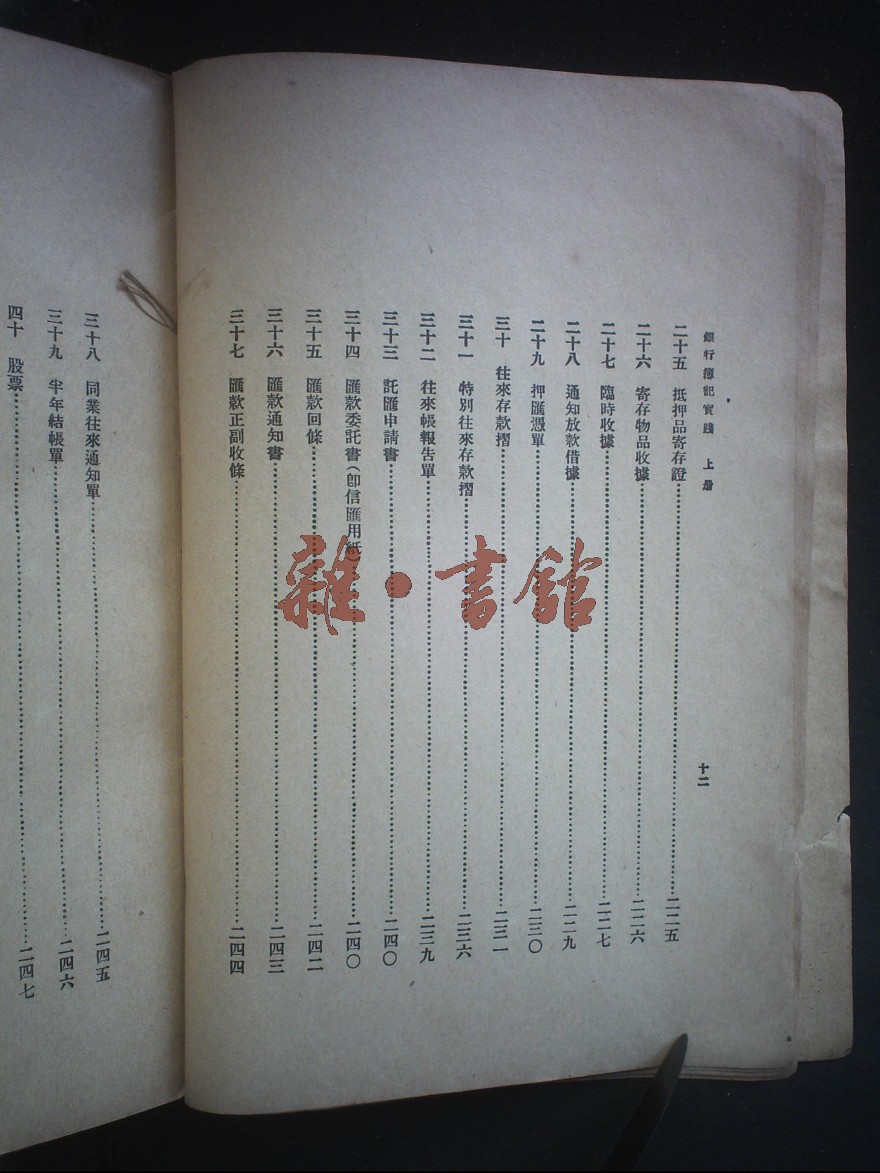 銀行簿記實踐 上册
十二
二十五 抵押品寄存證 二二五
二十六 寄存物品收據 二二六
二十七 臨時收據 二二七
二十八 通知放款借據 二二九
二十九 押匯憑單 二三〇
三十 往來存款摺 二三一
三十一 特別往來存款摺 二三六
三十二 往來帳報告單 二三九
三十三 託匯申請書 二四〇
三十四 匯款委託書(卽信匯用紙) 二四〇
三十五 匯款回條 二四二
三十六 匯款通知書 二四三
三十七 匯款正副收條 二四四
三十八 同業往來通知單 二四五
三十九 半年結帳單 二四六
四十 股票 二四七
雜·書館